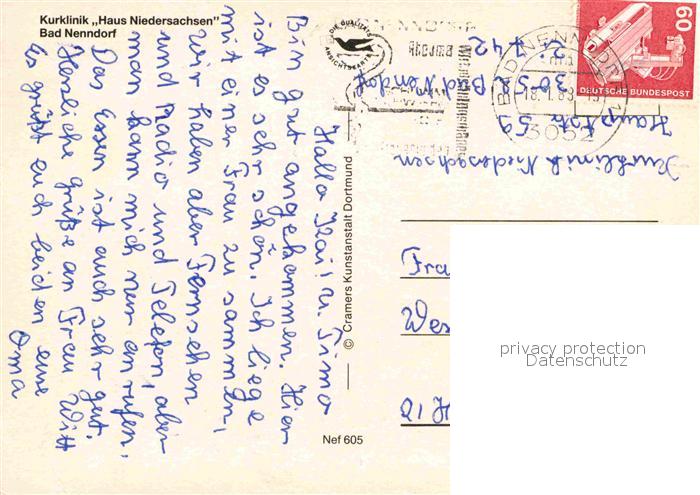 Kurklinik „Haus Niedersachsen"
Bad Nenndorf
Hallo Kai! u. Timo
Bin gut angekommen. Hier
ist es sehr schön. Ich liege
mit einer Frau zusammen,
wir haben aber Fernsehen
und Radio und Telefon, aber
man kann mich nur anrufen,
Das Essen ist auch sehr gut.
Herzliche grüße an Frau Witt
Es grüßt euch beiden eure
Oma
© Cramers Kunstanstalt Dortmund
Nef 605
DIE QUALITÄTS
ANSICHTSKARTE
BAD NENNDORF
18.1.89
3052
60
DEUTSCHE BUNDESPOST
Kurklinik Niedersachsen
Hauptstr. 59
3052 Bad Nendorf
442
Fra
Wes
21 H
privacy protection
Datenschutz